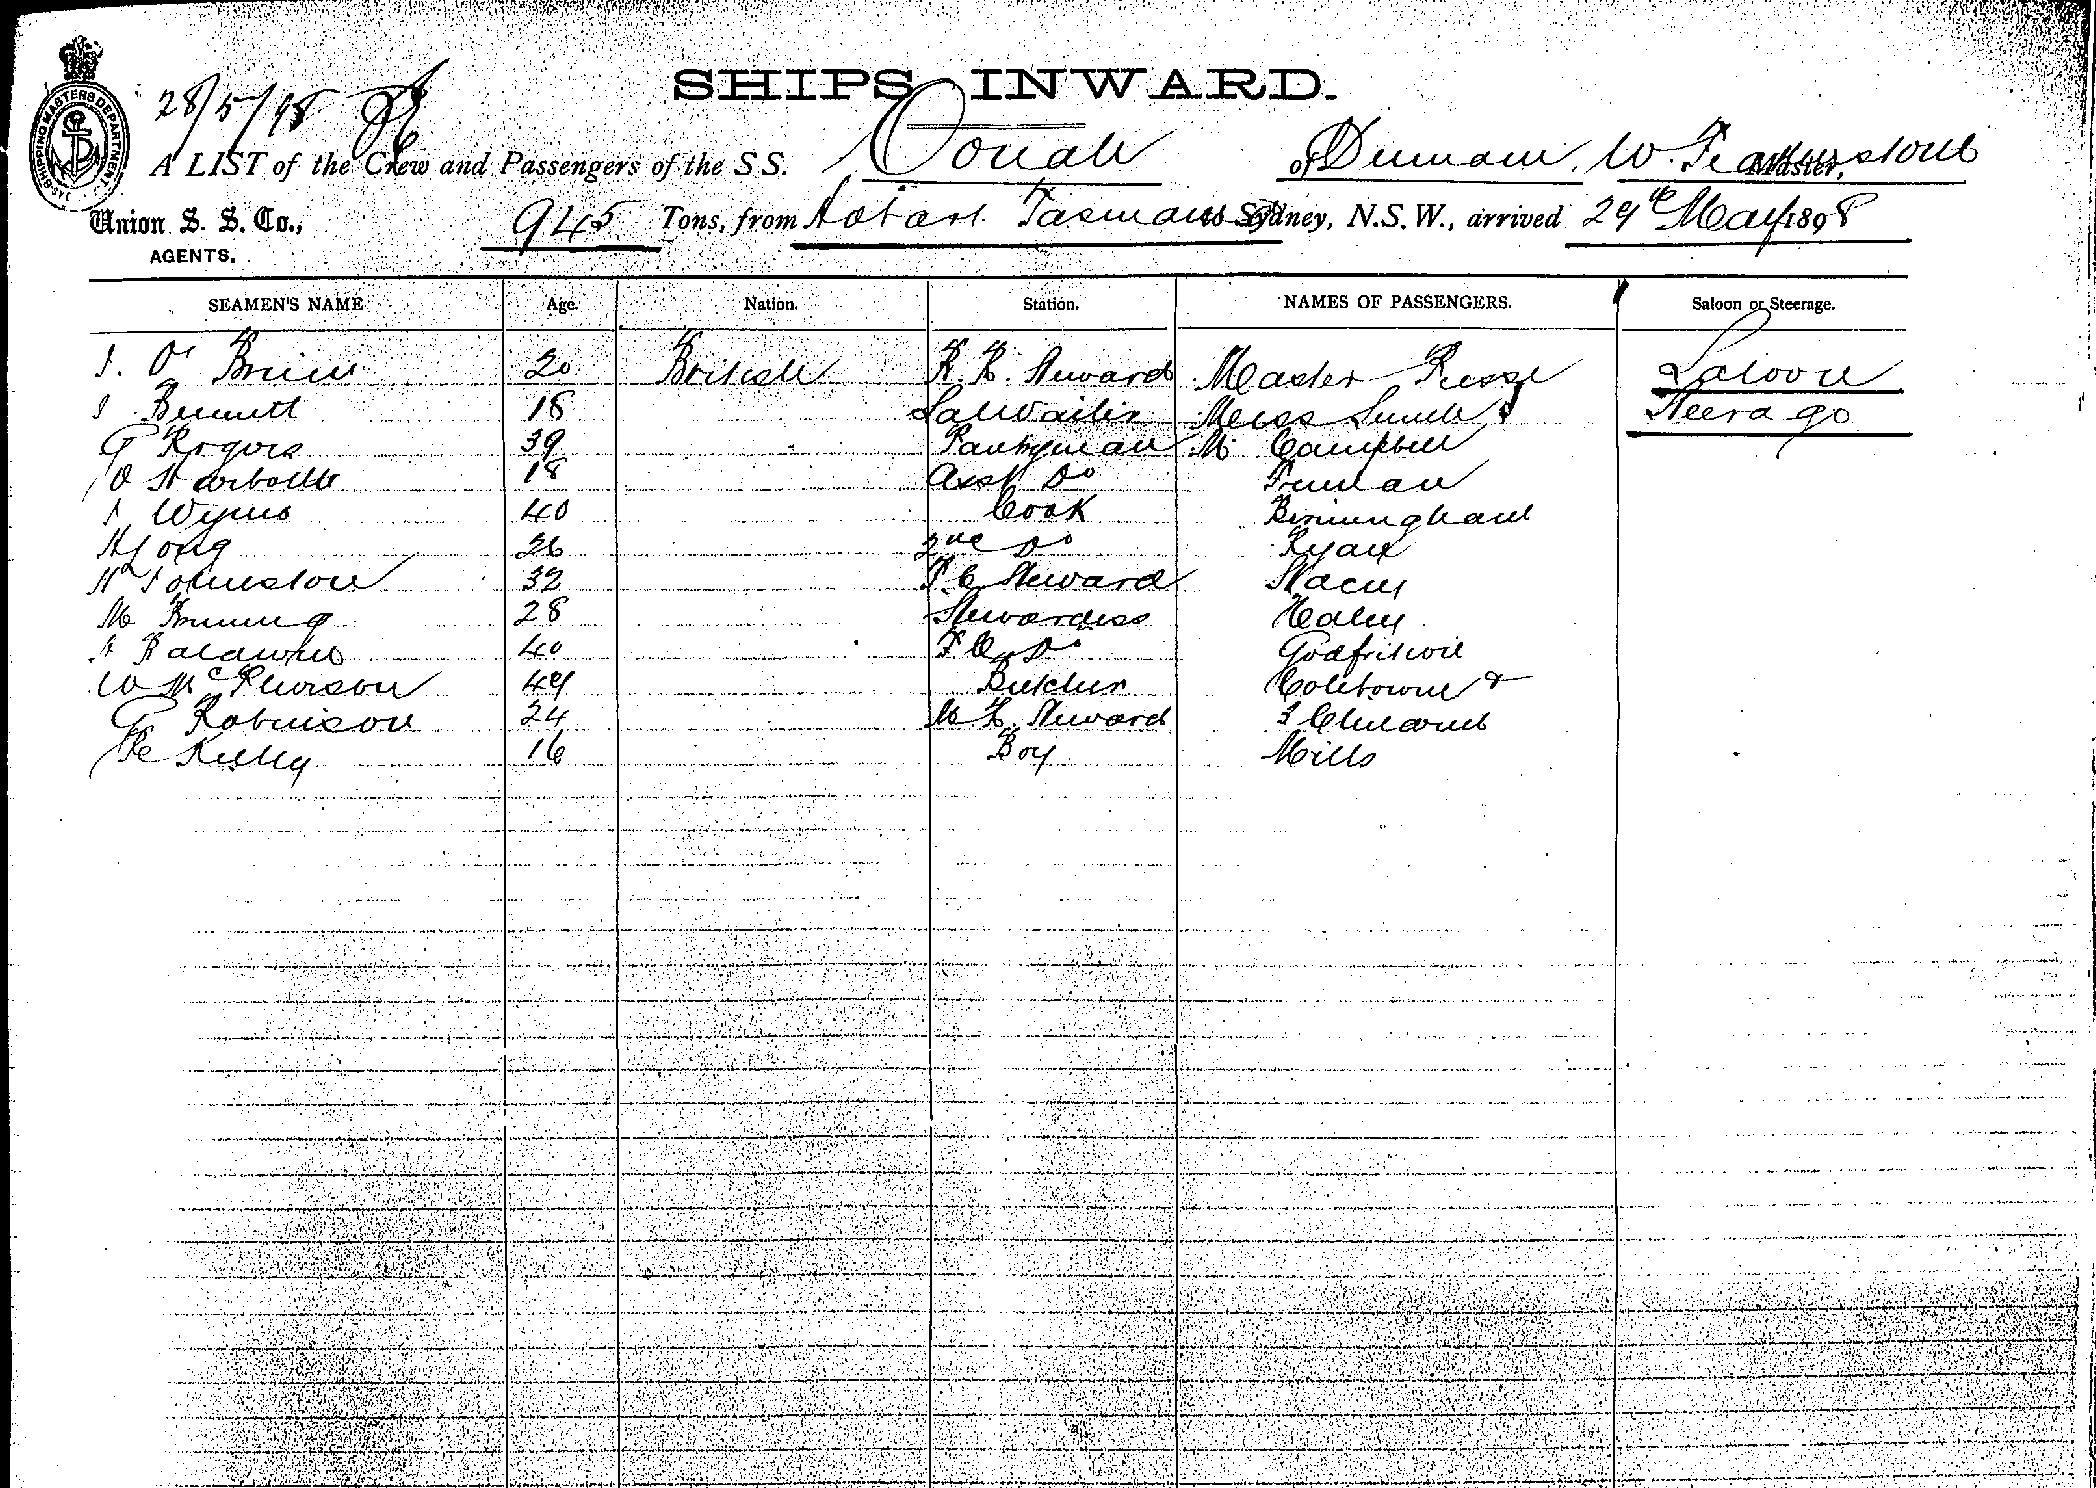 SHIPS INWARD.
28/5/98
TAS. SHIPPING MASTERS DEPARTMENT
A LIST of the Crew and Passengers of the S.S. Oonah of Dunedin, W. Featherstone Master,
Union S. S. Co., 945 Tons, from Hobart Tasmania to Sydney, N.S.W., arrived 29th May 1898
AGENTS.
SEAMEN'S NAME Age. Nation. Station. NAMES OF PASSENGERS. Saloon or Steerage.
J. O'Brien 20 British Steward Master Saloon
J Bennett 18 Sal Waiter Miss Steerage
G Rogers 39 Pantryman Mr Campbell
18 Asst Do Freeman
J Wynne 40 Cook Birmingham
H Long 26 2nd Do Ryan
H Johnstone 32 F. C. Steward Stacey
M 28 Stewardess Haley
Baldwin 40 F. C. Do
W McPherson 49 Butcher &
G Robinson 24 Steward 3 Children
Kelly 16 Boy Mills